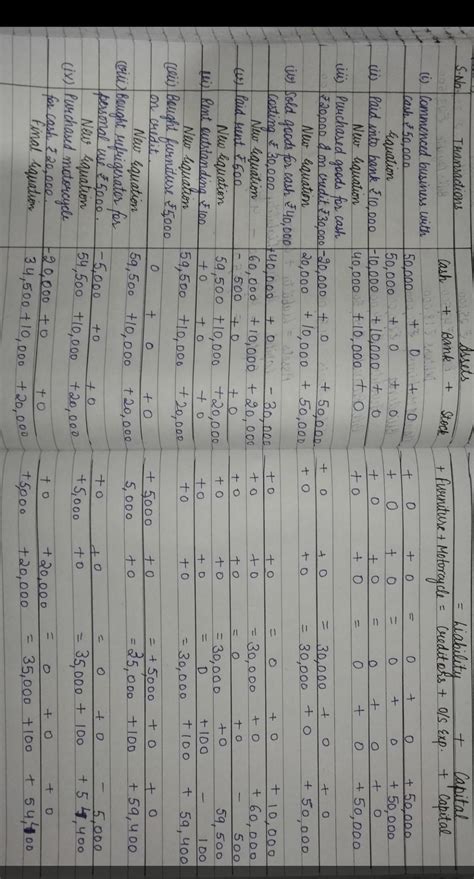 Assets = Liability + Capital
S.No. Transactions Cash + Bank + Stock + Furniture + Motorcycle = Creditors + O/S Exp. + Capital
(i) Commenced business with
cash ₹50,000 50,000 + 0 + 0 + 0 + 0 = 0 + 0 + 50,000
Equation 50,000 + 0 + 0 + 0 + 0 = 0 + 0 + 50,000
(ii) Paid into bank ₹10,000 -10,000 +10,000 + 0 + 0 + 0 = 0 + 0 + 0
New Equation 40,000 +10,000 + 0 + 0 + 0 = 0 + 0 + 50,000
(iii) Purchased goods for cash
₹20,000 & on credit ₹30,000 -20,000 + 0 + 50,000 + 0 + 0 = 30,000 + 0 + 0
New Equation 20,000 +10,000 + 50,000 + 0 + 0 = 30,000 + 0 + 50,000
(iv) Sold goods for cash ₹40,000
costing ₹30,000 +40,000 + 0 - 30,000 + 0 + 0 = 0 + 0 + 10,000
New Equation 60,000 + 10,000 + 20,000 + 0 + 0 = 30,000 + 0 + 60,000
(v) Paid rent ₹500 - 500 + 0 + 0 + 0 + 0 = 0 + 0 - 500
New Equation 59,500 +10,000 +20,000 + 0 + 0 = 30,000 + 0 59,500
(vi) Rent outstanding ₹100 + 0 + 0 + 0 + 0 + 0 = 0 +100 - 100
New Equation 59,500 +10,000 +20,000 + 0 + 0 = 30,000 +100 + 59,400
(vii) Bought furniture ₹5,000
on credit. 0 + 0 + 0 + 5000 + 0 = +5000 + 0 + 0
New Equation 59,500 +10,000 +20,000 5,000 + 0 = 25,000 +100 + 59,400
(viii) Bought refrigerator for
personal use ₹5000. -5,000 + 0 + 0 + 0 + 0 = 0 + 0 - 5,000
New Equation 54,500 +10,000 +20,000 +5,000 + 0 = 35,000 + 100 + 54,400
(iv) Purchased motorcycle
for cash ₹20,000. -20,000 + 0 + 0 + 0 +20,000 = 0 + 0 + 0
Final Equation 34,500 +10,000 + 20,000 +5,000 +20,000 = 35,000 +100 + 54,400